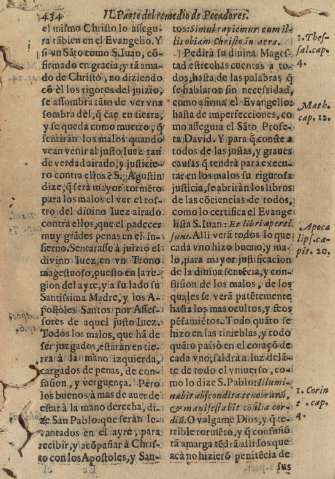 434 II. Parte del remedio de Pecadores.
el mismo Christo lo assegu-
ra tãbien en el Euangelio. Y
si vn Sãto como S. Iuan, cõ-
firmado en gracia, y tã ama-
do de Christo, no diziendo
cõ él los rigores del juizio,
se assombra tãto de ver vna
sombra dèl, q̃ cae en tierra,
y se queda como muerto, q̃
sentiràn los malos quando
vean venir al justo Iuez tan
de verdad airado, y justicie-
ro contra ellos? S. Agustin
dize, q̃ serà mayor tormẽto
para los malos el ver el ros-
tro del diuino Iuez airado
contra ellos, que el padecer
muy grãdes penas en el In-
fierno. Sentarasse à juizio el
diuino Iuez en vn Trono
magestuoso, puesto en la re-
gion del ayre, y a su lado su
Santissima Madre, y los A-
postoles Santos por Asses-
sores de aquel justo Iuez.
Todos los malos, que hà de
ser juzgados, estaràn en tie-
rra à la mano izquierda,
cargados de penas, de con-
fusion, y verguença. Pero
los buenos à mas de auer de
estar à la mano derecha, di-
ze San Pablo, que seràn le-
uantados en el ayre, para
recibir, y acõpañar à Chris-
to con los Apostoles, y San-
tos: Simul rapiemur cum il-
lis obiam Christo in aera.
2. Thes-
sal. cap.
4.
Pedirà su diuina Mages-
tad estrechas cuentas a to-
dos, hasta de las palabras q̃
se hablaron sin necessidad,
como afirma el Euangelio:
Math.
cap. 12.
hasta de imperfecciones, co-
mo assegura el Sãto Profe-
ta Dauid. Y para q̃ conste à
todos de las justas, y graues
causas q̃ tendrà para execu-
tar en los malos su rigurosa
justicia, se abriràn los libros
de las cõciencias de todos,
como lo certifica el Euange-
lista S. Iuan: Et libri aperti
sunt. Allì verà todos lo que
Apoca
lips. ca-
pit. 20.
cada vno hizo bueno, y ma-
lo, para mayor justificacion
de la diuina sentẽcia, y con-
fusion de los malos, de los
quales se verà patẽtemente
hasta los mas ocultos, y feos
pẽsamiẽtos. Todo quãto se
hizo en las tinieblas, y todo
quãto passò en el coraçõ de
cada vno, saldrà a luz delã-
te de todo el vniuerso, co-
mo lo dize S. Pablo: Illumi-
nabit abscondita tenebrarũ,
& manifestabit consilia cor-
diũ. O valgame Dios, y q̃ te-
1. Corin
t. cap.
4.
rrible recuesto, y q̃ confusiõ
tã amarga tẽdrà allì los que
acà no hizierõ penitẽcia de
sus